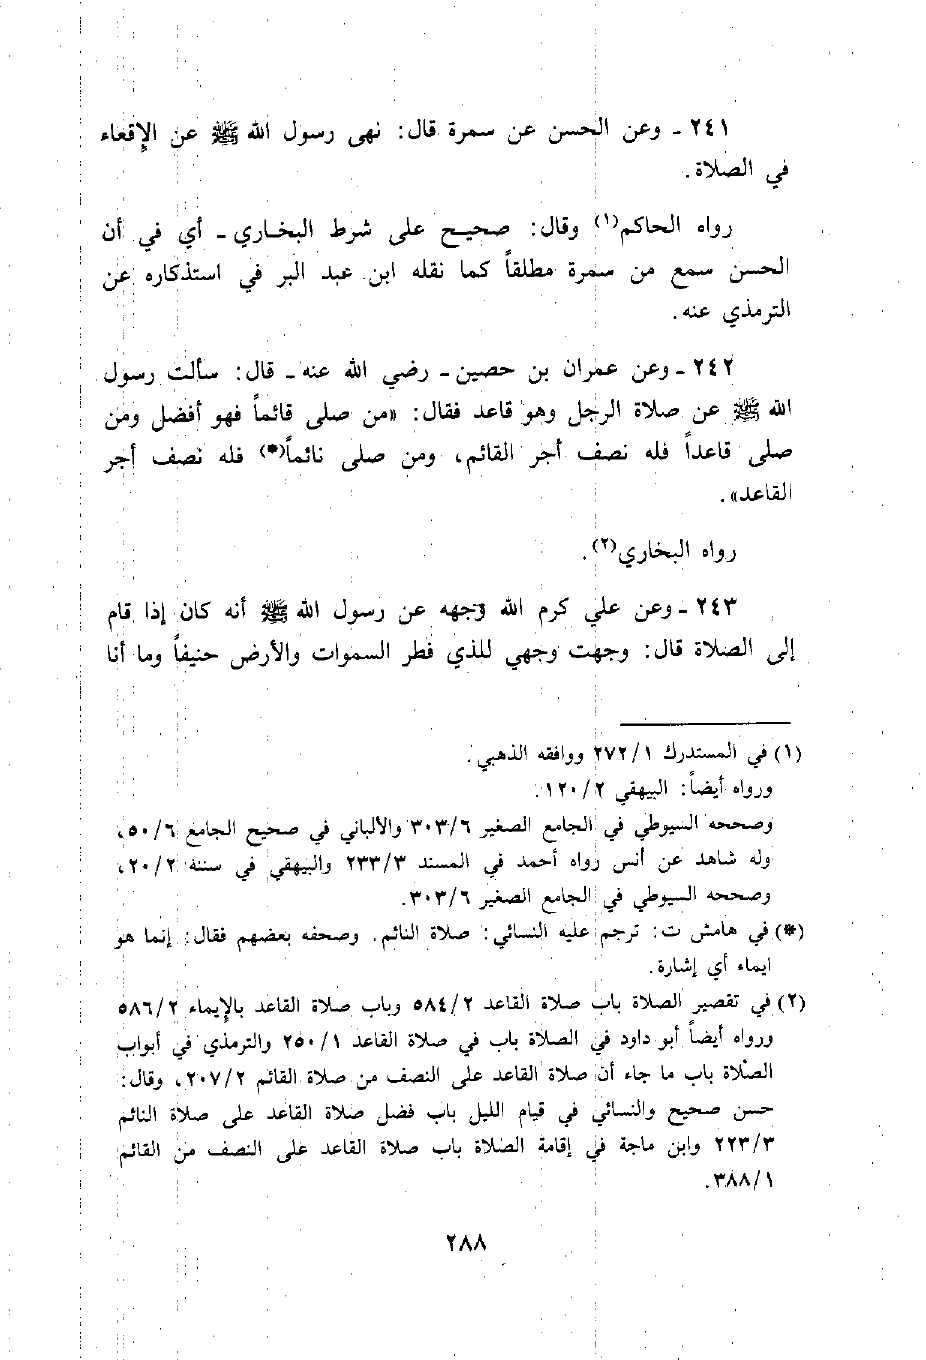 ٢٤١ - وعن الحسن عن سمرة قال: نهى رسول الله ﷺ عن الإقعاء
في الصلاة.
رواه الحاكم(١) وقال: صحيح على شرط البخاري - أي في أن
الحسن سمع من سمرة مطلقاً كما نقله ابن عبد البر في استذكاره عن
الترمذي عنه.
٢٤٢ - وعن عمران بن حصين - رضي الله عنه - قال: سألت رسول
الله ﷺ عن صلاة الرجل وهو قاعد فقال: «من صلى قائماً فهو أفضل ومن
صلى قاعداً فله نصف أجر القائم، ومن صلى نائماً(*) فله نصف أجر
القاعد».
رواه البخاري(٢).
٢٤٣ - وعن علي كرم الله وجهه عن رسول الله ﷺ أنه كان إذا قام
إلى الصلاة قال: وجهت وجهي للذي فطر السموات والأرض حنيفاً وما أنا
(١) في المستدرك ٢٧٢/١ ووافقه الذهبي.
ورواه أيضاً: البيهقي ١٢٠/٢.
وصححه السيوطي في الجامع الصغير ٣٠٣/٦ والألباني في صحيح الجامع ٥٠/٦،
وله شاهد عن أنس رواه أحمد في المسند ٢٣٣/٣ والبيهقي في سننه ٢٠/٢،
وصححه السيوطي في الجامع الصغير ٣٠٣/٦.
(*) في هامش ت: ترجم عليه النسائي: صلاة النائم. وصحفه بعضهم فقال: إنما هو
ايماء أي إشارة.
(٢) في تقصير الصلاة باب صلاة القاعد ٥٨٤/٢ وباب صلاة القاعد بالإيماء ٥٨٦/٢
ورواه أيضاً أبو داود في الصلاة باب في صلاة القاعد ٢٥٠/١ والترمذي في أبواب
الصلاة باب ما جاء أن صلاة القاعد على النصف من صلاة القائم ٢٠٧/٢، وقال:
حسن صحيح والنسائي في قيام الليل باب فضل صلاة القاعد على صلاة النائم
٢٢٣/٣ وابن ماجة في إقامة الصلاة باب صلاة القاعد على النصف من القائم
٣٨٨/١.
٢٨٨